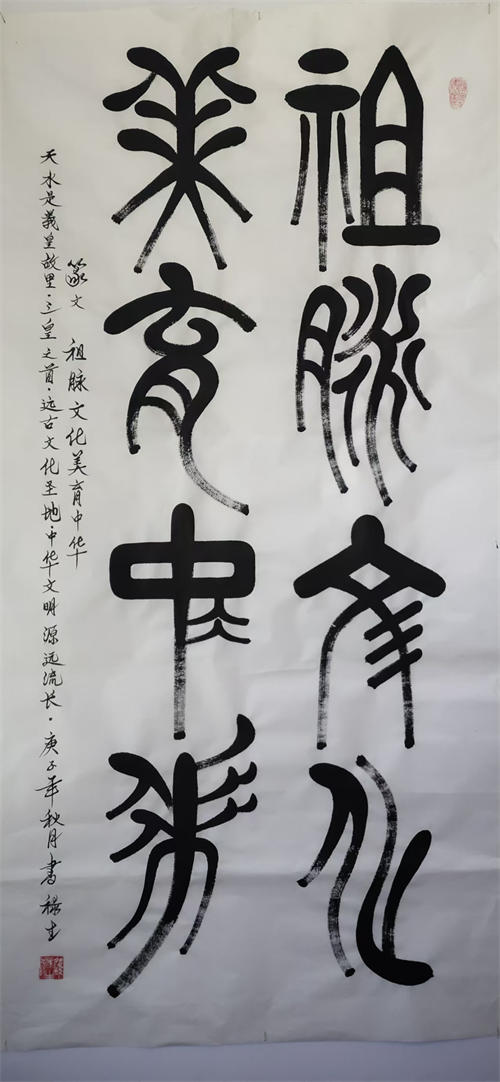 祖脉文化
美育中华
篆文 祖脉文化美育中华
天水是羲皇故里·三皇之首·远古文化圣地·中华文明源远流长·庚子年秋月書